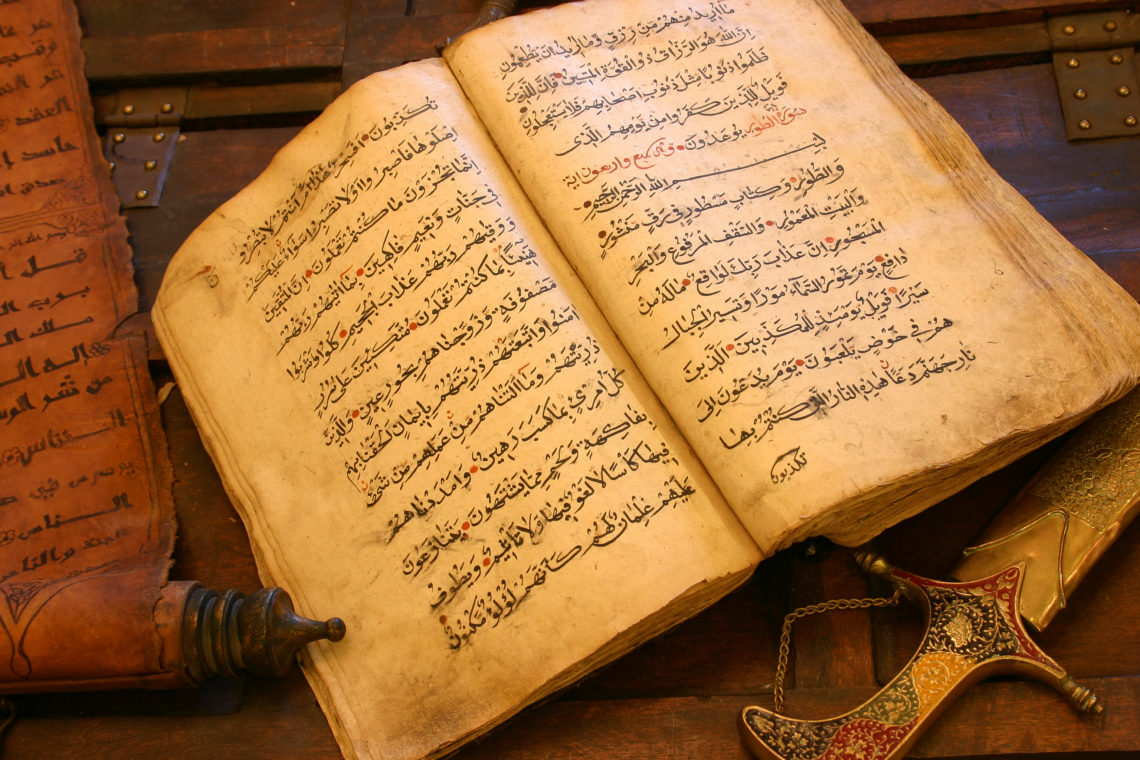 ما أريد منهم من رزق وما أريد ان يطعمون
ان الله هو الرزاق ذو القوة المتين فان للذين
ظلموا ذنوبا مثل ذنوب اصحابهم فلا يستعجلون
فويل للذين كفروا من يومهم الذي
سورة الطور يوعدون وآي سبع واربعون اية
بسم الله الرحمن الرحيم
والطور وكتاب مسطور في رق منشور
والبيت المعمور والسقف المرفوع والبحر
المسجور ان عذاب ربك لواقع ماله من
دافع يوم تمور السماء مورا وتسير الجبال
سيرا فويل يومئذ للمكذبين الذين
هم في خوض يلعبون يوم يدعون الى
نار جهنم دعا هذه النار التي كنتم بها
تكذبون
تكذبون افسحر هذا ام انتم لا تبصرون
اصلوها فاصبروا او لا تصبروا سواء عليكم
انما تجزون ما كنتم تعملون ان المتقين
في جنات ونعيم فاكهين بما آتاهم ربهم
ووقيهم ربهم عذاب الجحيم كلوا واشربوا
هنيئا بما كنتم تعملون متكئين على سرر
مصفوفة وزوجناهم بحور عين والذين
آمنوا واتبعتهم ذريتهم بايمان الحقنا بهم
ذريتهم وما التناهم من عملهم من شيء
كل امرئ بما كسب رهين وامددناهم
بفاكهة ولحم مما يشتهون يتنازعون
فيها كاسا لا لغو فيها ولا تأثيم ويطوف
عليهم غلمان لهم كانهم لؤلؤ مكنون
العقد
حاسد
قل
برب
ملك
إله
من شر
الخناس
في
الناس
الجنة والناس